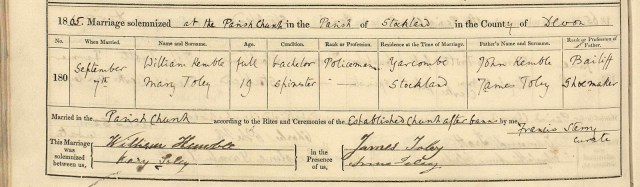 1865. Marriage solemnized at the Parish Church in the Parish of Stockland in the County of Devon
No. When Married. Name and Surname. Age. Condition. Rank or Profession. Residence at the Time of Marriage. Father's Name and Surname. Rank or Profession of Father.
180 September 7th William Hemble full bachelor Policeman Yarcombe John Hemble Bailiff
Mary Toley 19 spinster — Stockland James Toley Shoemaker
Married in the Parish Church according to the Rites and Ceremonies of the Established Church after banns by me
Francis Sterry curate
This Marriage was solemnized between us, William Hemble Mary Toley In the Presence of us, James Toley Anna Toley